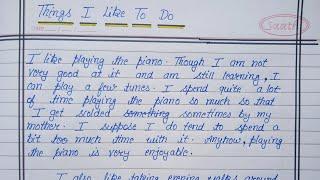 Things I Like To Do
Saath
I like playing the piano. Though I am not
very good at it and am still learning, I
can play a few tunes. I spend quite a lot
of time playing the piano so much so that
I get scolded something sometimes by my
mother. I suppose I do tend to spend a
bit too much time with it. Anyhow, playing
the piano is very enjoyable.
I also like taking evening walks around